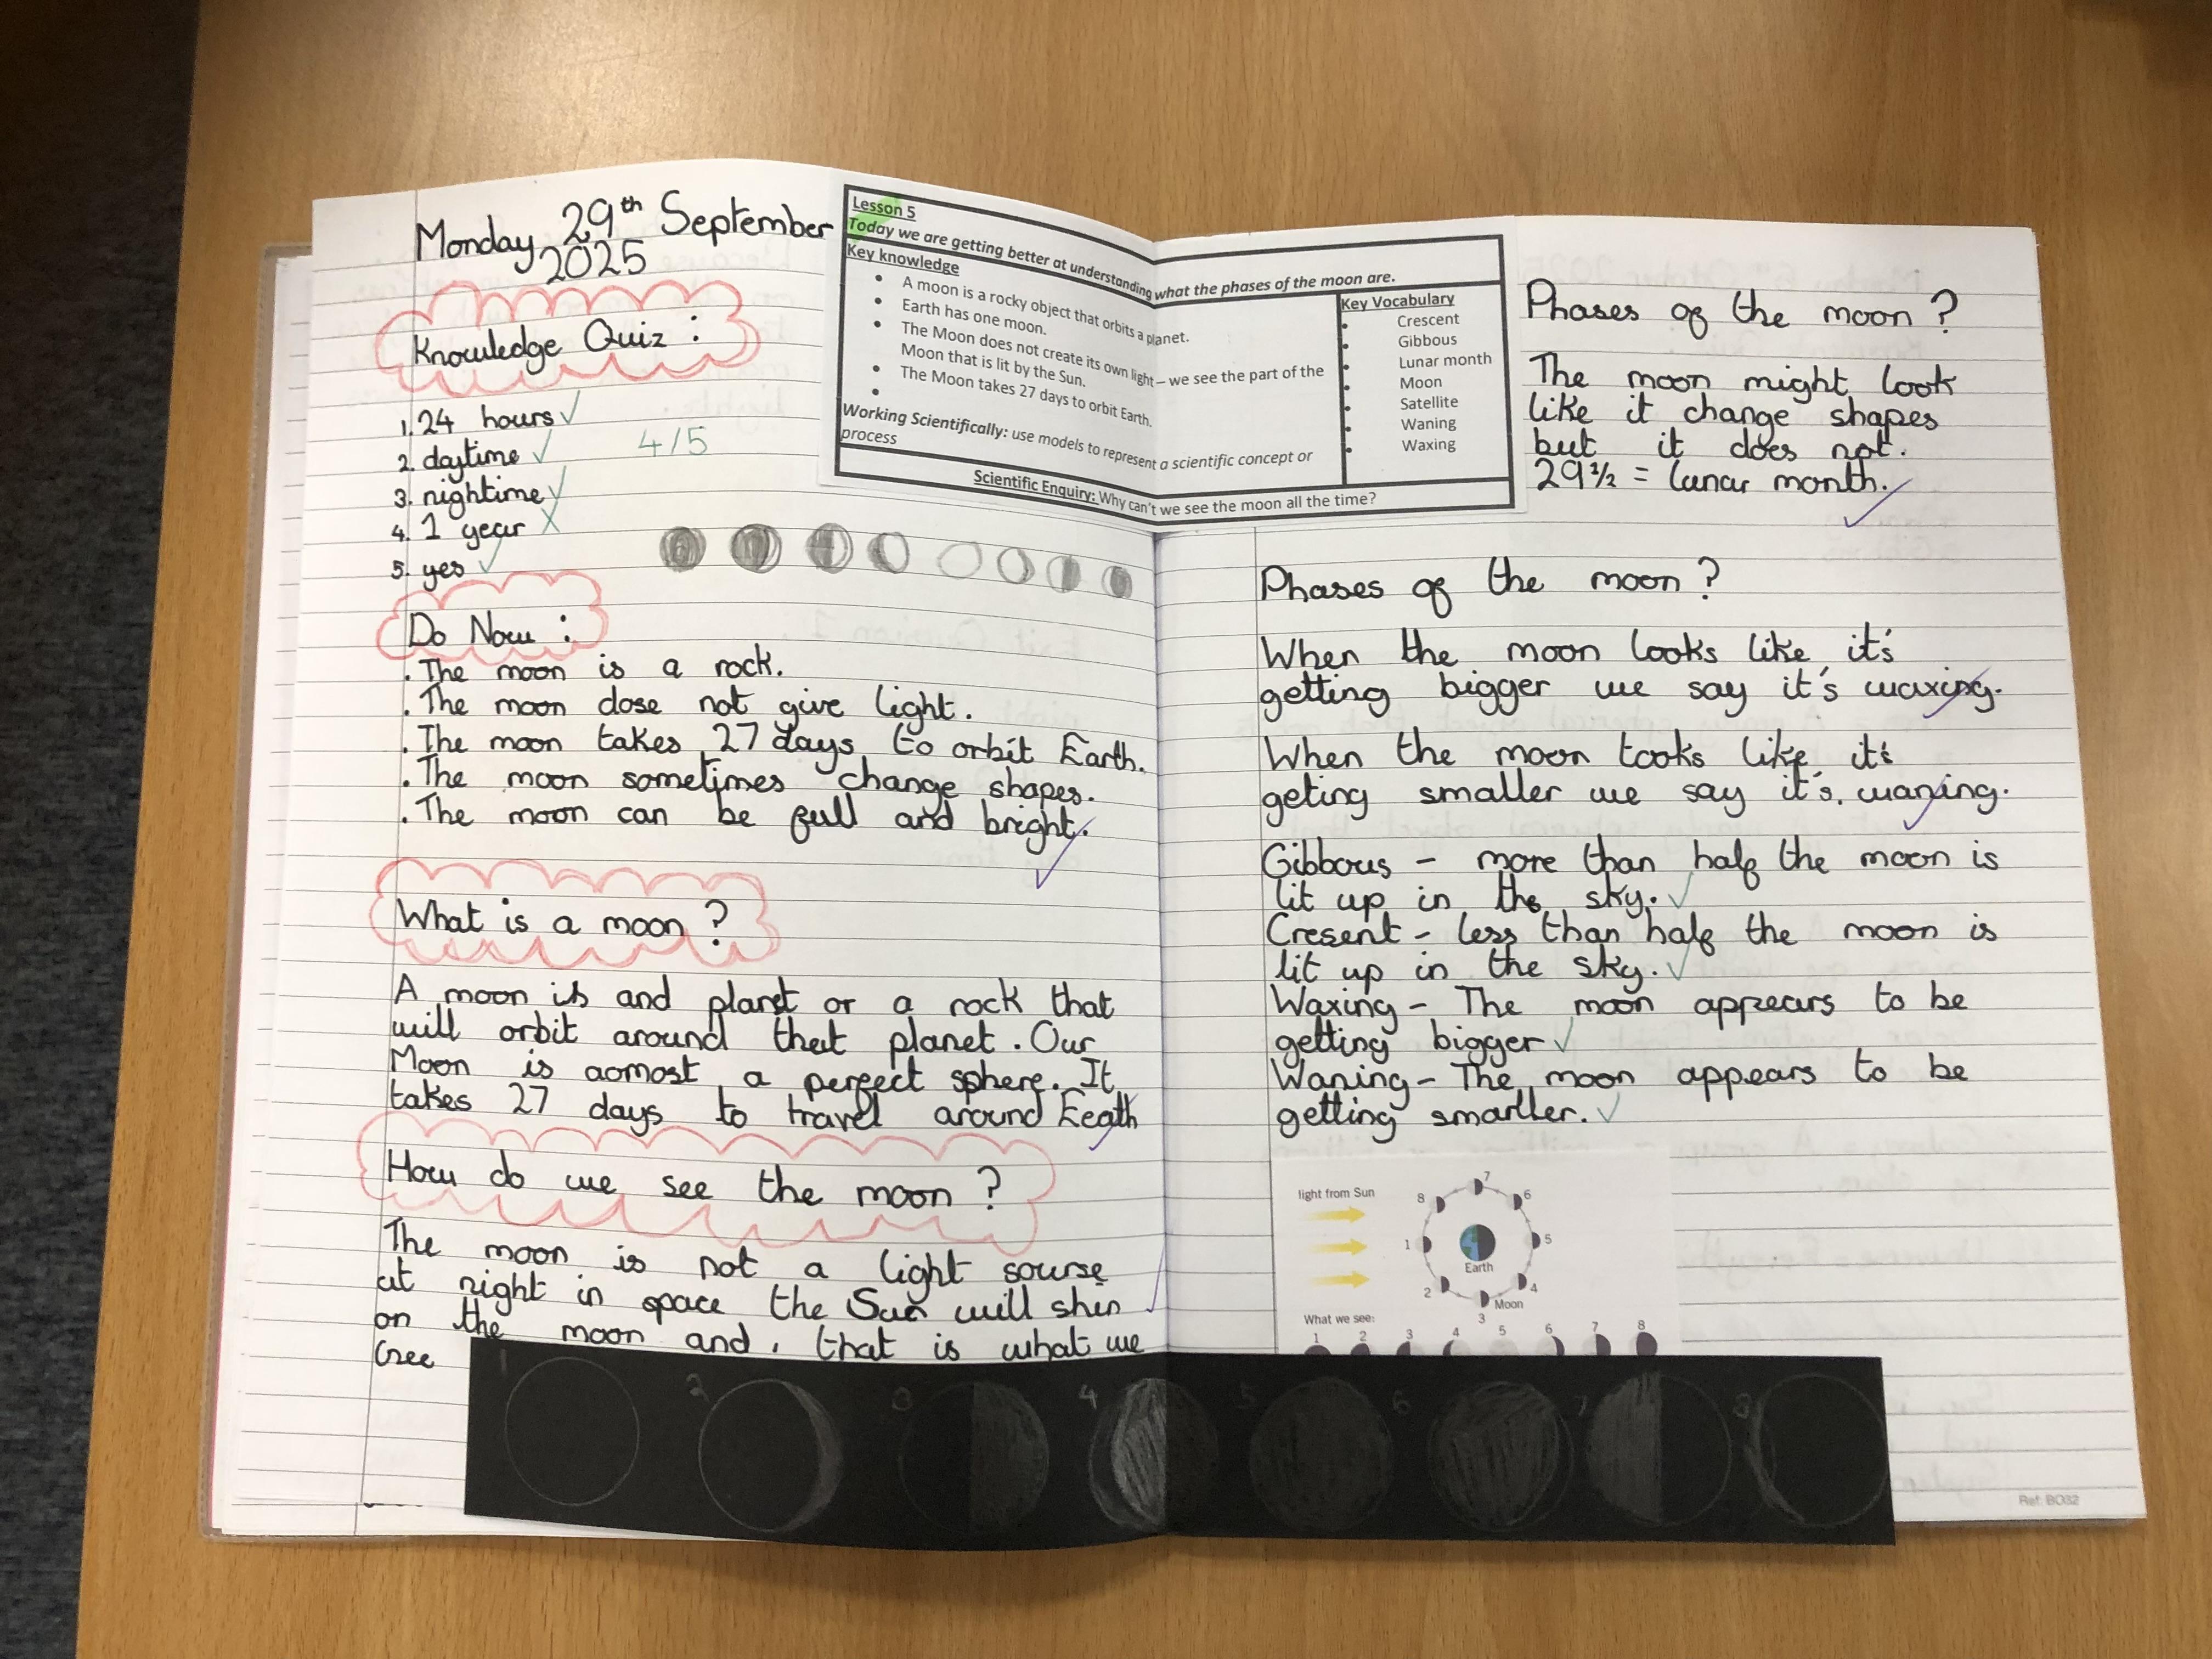 Monday 29th September
2025
Knowledge Quiz :
1. 24 hours
2. daytime
3. nightime
4. 1 year
5. yes
4/5
Do Now :
. The moon is a rock.
. The moon dose not give light.
. The moon takes 27 days to orbit Earth.
. The moon sometimes change shapes.
. The moon can be full and bright.
What is a moon ?
A moon is and planet or a rock that
will orbit around that planet. Our
Moon is aomost a perfect sphere. It
takes 27 days to travel around Eeath
How do we see the moon ?
The moon is not a light sourse
at night in space the Sun will shin
on the moon and, that is what we
see
Lesson 5
Today we are getting better at understanding what the phases of the moon are.
Key knowledge
• A moon is a rocky object that orbits a planet.
• Earth has one moon.
• The Moon does not create its own light – we see the part of the
Moon that is lit by the Sun.
• The Moon takes 27 days to orbit Earth.
•
Working Scientifically: use models to represent a scientific concept or
process
Key Vocabulary
• Crescent
• Gibbous
• Lunar month
• Moon
• Satellite
• Waning
• Waxing
Scientific Enquiry: Why can't we see the moon all the time?
Phases of the moon ?
The moon might look
like it change shapes
but it does not.
29 1/2 = lunar month.
Phases of the moon ?
When the moon looks like it's
getting bigger we say it's waxing.
When the moon tooks like it's
geting smaller we say it's. waning.
Gibbous – more than half the moon is
lit up in the sky.
Cresent – less than half the moon is
lit up in the sky.
Waxing – The moon appears to be
getting bigger
Waning – The moon appears to be
getting smarller.
light from Sun
8
7
6
1
5
Earth
2
4
Moon
3
What we see:
1 2 3 4 5 6 7 8
1 2 3 4 5 6 7 8
Ref: BO32